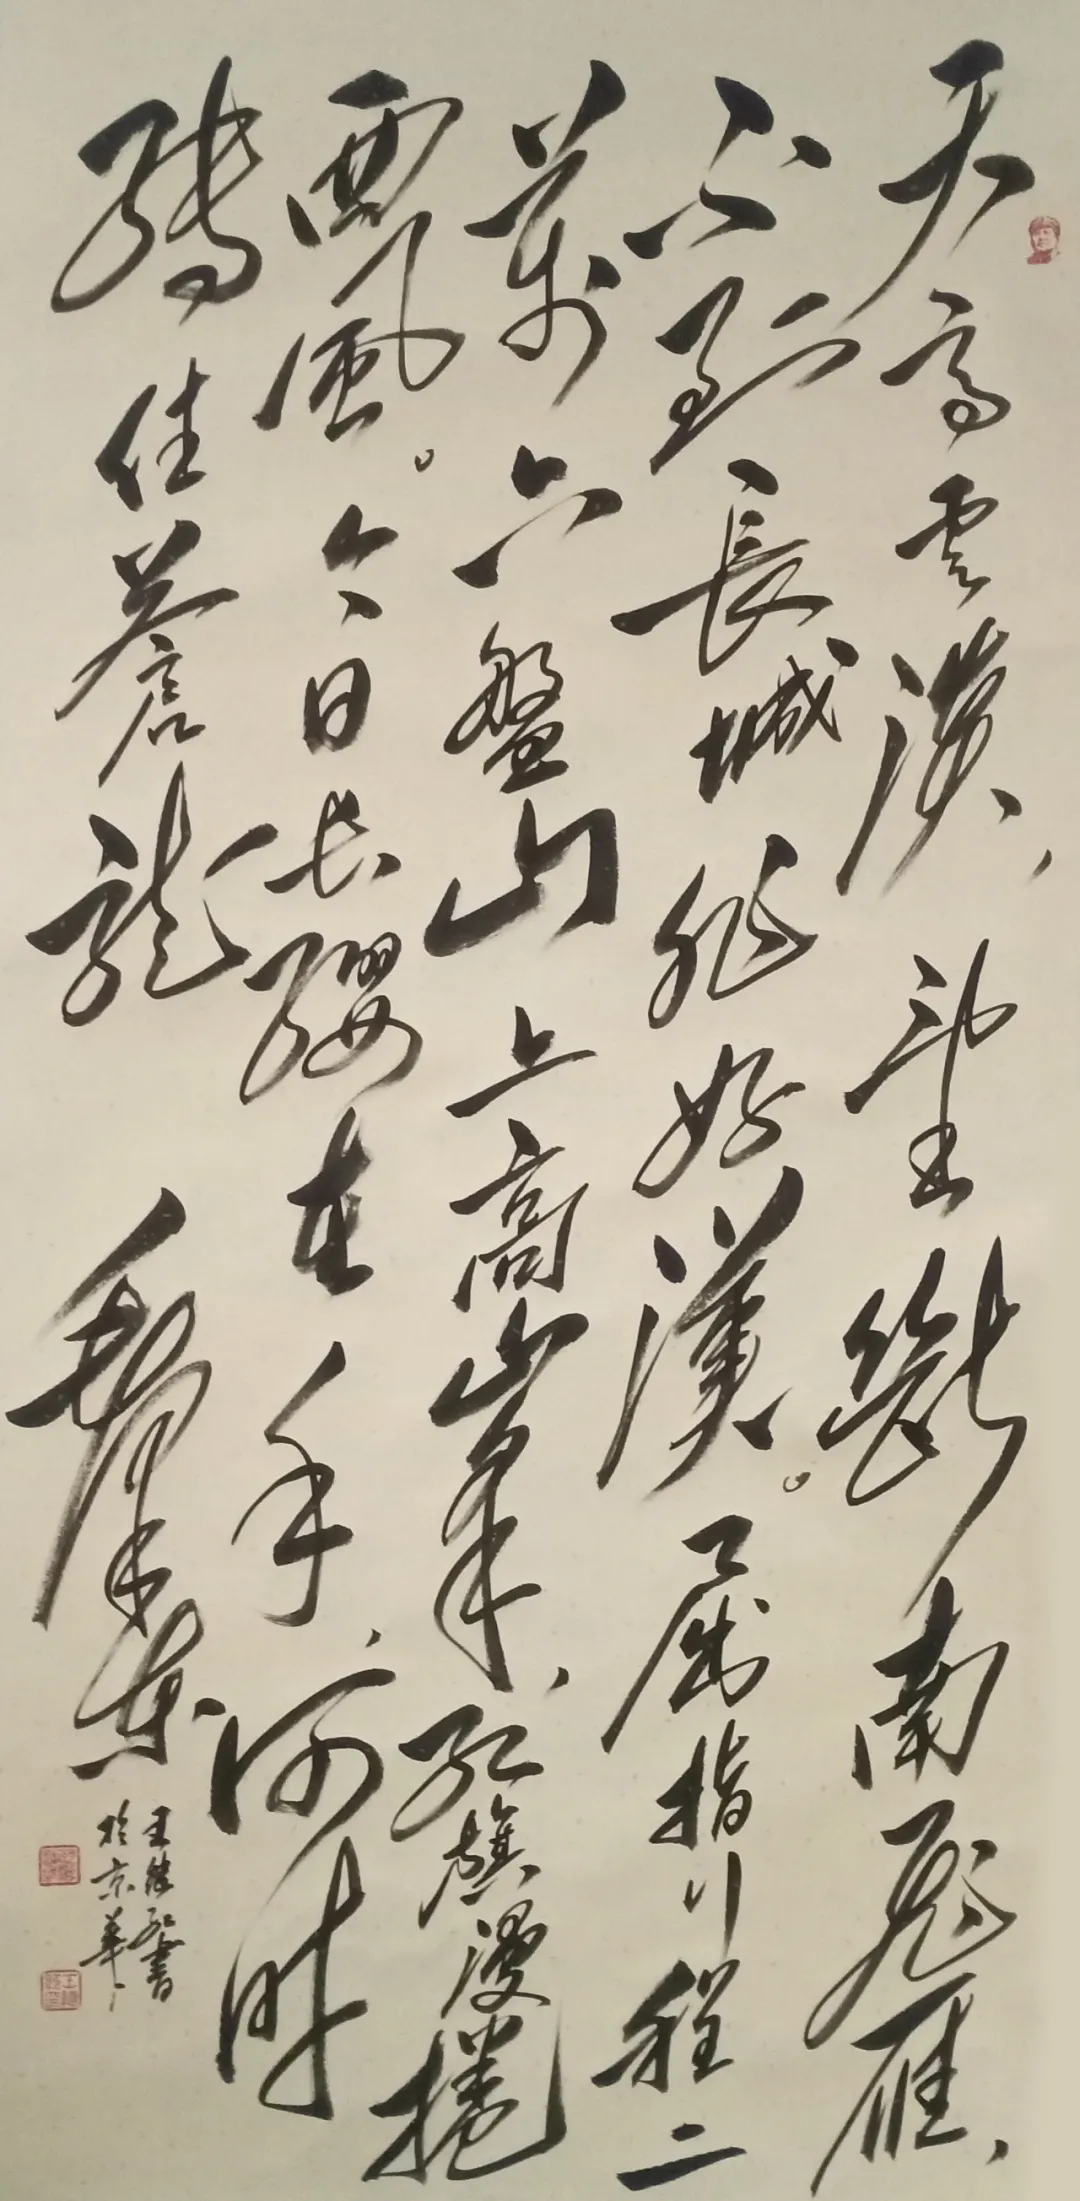 天高雲淡、望斷南飛雁、
不到長城非好漢。屈指行程二
萬六盤山上高峯、紅旗漫捲
西風。今日長纓在手、何時
縛住蒼龍 毛澤東
王書
於京華